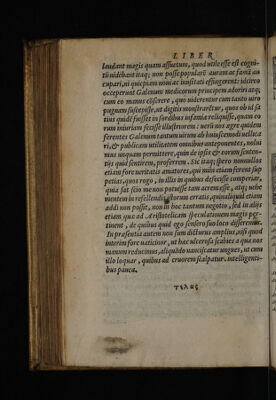 LIBER
laudant magis quam assuetum, quod utile esse est cogni-
tũ uidebant itaq; non posse popularẽ auram ac famã au
cupari, ni quicpiam noui ac inusitati effingerent: idcirco
occeperunt Galenum medicorum principem adoriri atq;
cum eo manus cõserere, quo uiderentur cum tanto uiro
pugnam suscepisse, ut digitis monstrarẽtur, quos ob id sa
tius quidẽ fuisset in sordibus infamia reliquisse, quam eo
rum iniuriam fecisse illustriorem: uerũ nos ægre quidem
ferentes Galenum tantum uirum ab huiuscemodi
ri, & publicam utilitatem omnibus anteponentes, nolui
mus unquam permittere, quin de ipsis & eorum senten-
tijs quid sentirem, proferrem. Sic itaq; spero nonnullos
etiam fore ueritatis amatores, qui mihi etiam ferent sup
petias, quos rogo, in illis in quibus defecisse comperiar,
quia sat scio me non potuisse tam acrem esse, atq; uehe
mentem in refellendis istorum erratis, quin aliquid etiam
addi non possit, non in hoc tantum negotio, sed in alijs
etiam quæ ad Aristotelicam speculationem magis per-
tinent, de quibus quid ego sensero suo loco disseremus.
In præsentia autem non sum dicturus amplius, nisi quod
interim fore uaticinor, ut hæc ulcerosa scabies a qua nos
manum reducimus, aliquãdo nanciscatur ungues, ut cum
illo loquar, quibus ad cruorem scalpatur. intelligenti-
bus pauca.
τέλος